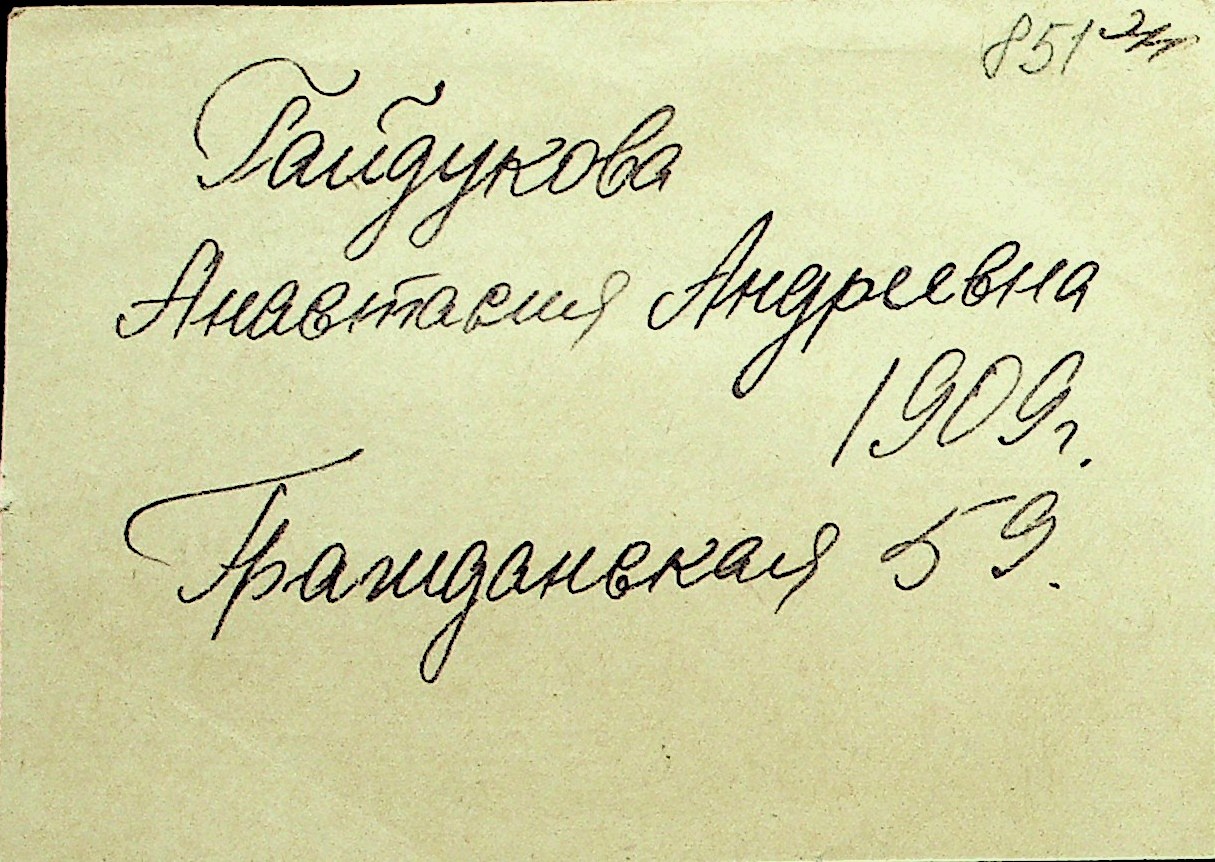 851
Гайдукова
Анастасия Андреевна
1909г.
Гражданская 59.